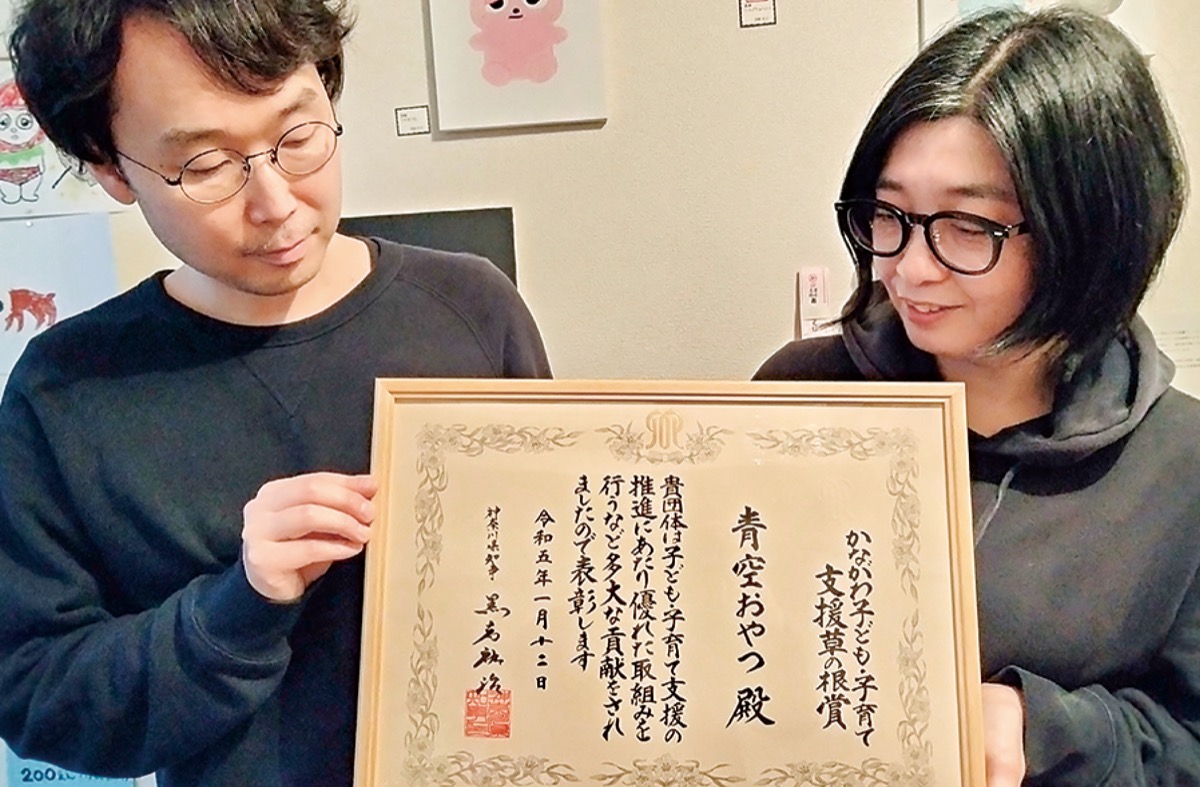 かながわ子ども・子育て
支援草の根賞
青空おやつ 殿
貴団体は子ども・子育て支援の
推進にあたり優れた取組みを
行うなど多大な貢献をされ
ましたので表彰します
令和五年一月十二日
神奈川県知事 黒岩祐治
200